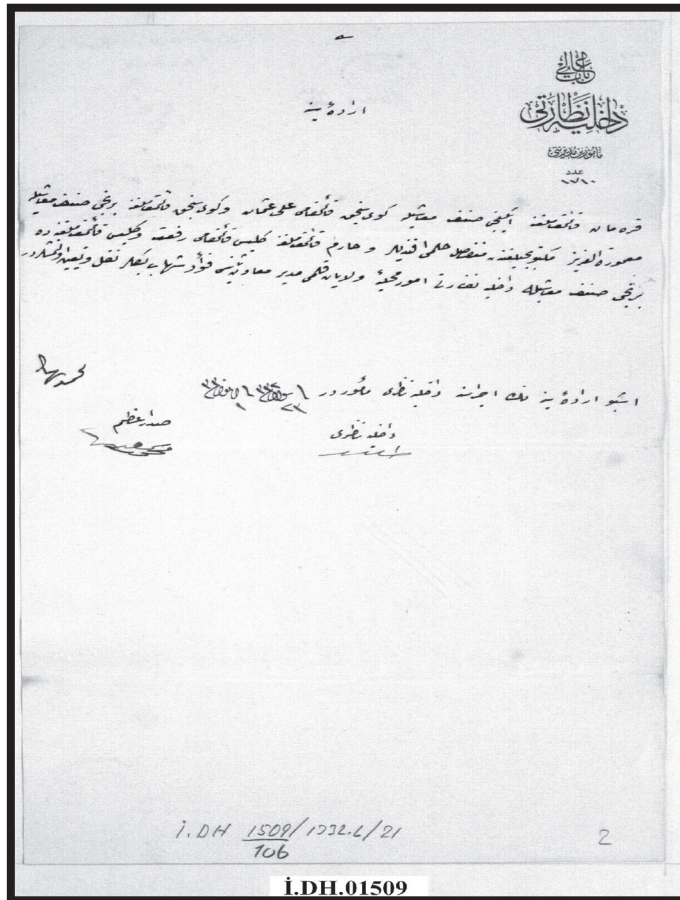 باب عالی
داخلیه نظارتی
مأمورین مدیریتی
عدد
اراده سنیه
قره مان قائمقاملغنه ایکنجی صنف معاشیله كوی سنجق قائمقامی علی عثمان و كوی سنجق قائمقاملغنه برنجی صنف معاشیله
معمورة العزیز مكتوبجیلغندن منفصل حلمی افندیلر و حارم قائمقاملغنه كلیس قائمقامی رفعت و كلیس قائمقاملغنه ده
برنجی صنف معاشیله داخلیه نظارتی امور محلیه ولایات قلمی مدیر معاونی فؤاد شهاب بكلر نقل و تعیین اولنمشلردر
اشبو اراده سنیه نك اجراسنه داخلیه ناظری مأموردر
محمد رشاد
صدراعظم
داخلیه ناظری
İ.DH 1509/1332.C/21
106
2
İ.DH.01509